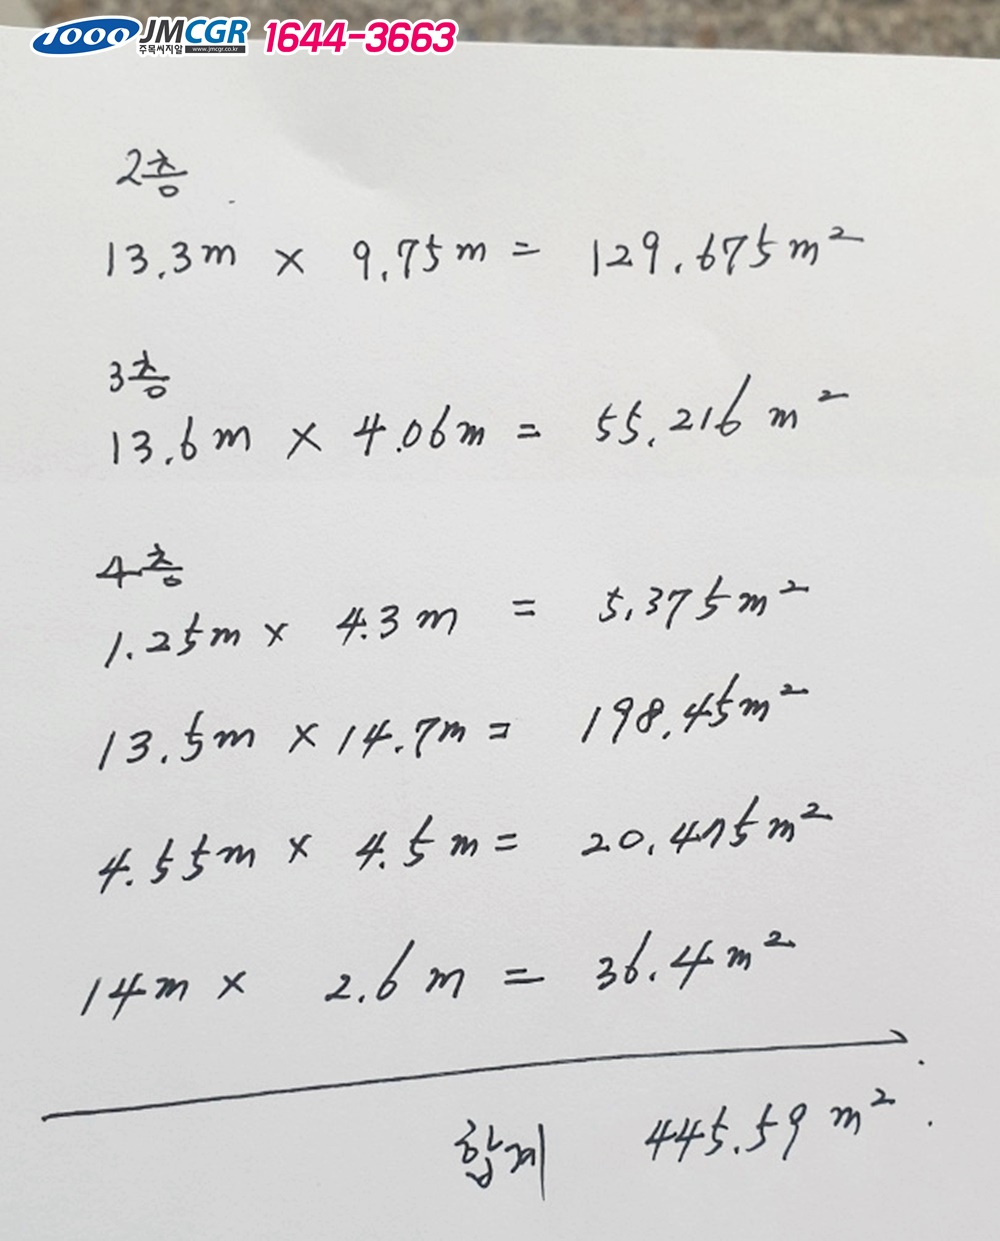 1000 JMCGR 1644-3663
주목씨지알 www.jmcgr.co.kr
2층
13.3m × 9.75m = 129.675m²
3층
13.6m × 4.06m = 55.216 m²
4층
1.25m × 4.3m = 5.375m²
13.5m × 14.7m = 198.45m²
4.55m × 4.5m = 20.475m²
14m × 2.6m = 36.4m²
합계 445.59 m².